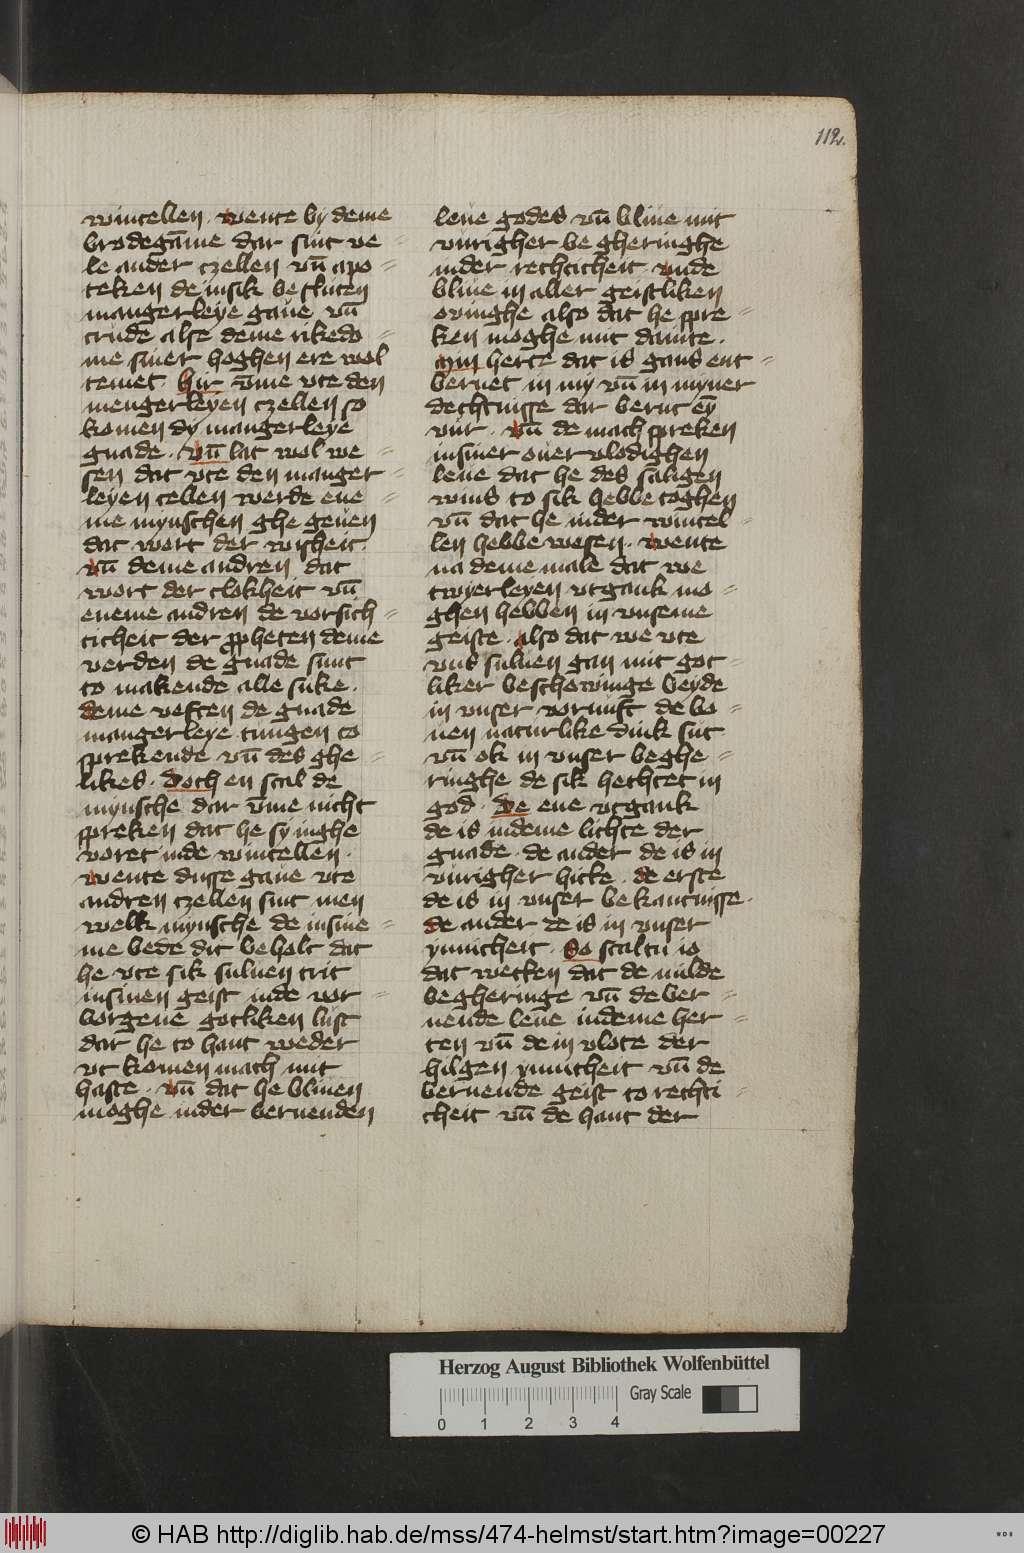 112.
wintellen · wente by deme
brodegāme dar sint ve
le ander czellen vn̄ apo=
teken de insik besluten
mangerleye gaue vn̄
crude alse deme rikedo=
me siner hoghen ere wol
temet · hir v̄me vte den
mengerleyen czellen so
komen dy mangerleye
gnade · vn̄ lat wol we=
sen dat vte den manger=
leyen cellen werde ene=
me mynschen ghe geuen
dat wort der wisheit ·
vn̄ deme andren dat
wort der clokheit vn̄
eneme andren de vorsich=
ticheit der ꝓpheten deme
verden de gnade sunt
to makende alle suke ·
deme veften de gnade
mangerleye tungen to
sprekende vn̄ des ghe=
likes · doch en scal de
mynsche dar v̄me nicht
spreken dat he sy inghe
voret inde wintellen ·
wente dusse gaue vte
andren czellen sint men
welk mynsche de insine=
me bede dit beholt dat
he vte sik suluen trit
insinen geist inde vor=
borgene gotliken lust
dar he to hant weder
vt komen mach mit
haste · vn̄ dat he bliuen
moghe inder bernenden
leue godes vn̄ bliue mit
vurigher be gheringhe
inder rechticheit · vnde
bliue in aller geistliken
ouinghe also dat he spre=
ken moghe mit dauite ·
myn herte dat is gans ent=
bernet in my vn̄ in myner
dechtnisse dar bernt ey̅
vur · vn̄ de mach spreken
insiner ouer vlodighen
leue dat he des saligen
wins to sik hebbe toghen
vn̄ dat he inder wintel=
len hebbe wesen · wente
na deme male dat we
twyerleyen vtgank mo=
ghen hebben in vnseme
geiste · also dat we vte
vns suluen gan mit got=
liker beschowinge beyde
in vnser vornuft de bo=
uen naturlike dink sut
vn̄ ok in vnser beghe=
ringhe de sik hechtet in
god · de ene vtgank
de is indeme lichte der
gnade · de ander de is in
vurigher hitte · de erste
de is in vnser bekantnisse ·
de ander de is in vnser
ynnicheit · So scaltu io
dat wecken dat de milde
begheringe vn̄ de ber=
nende leue indeme her=
ten vn̄ de in vlote der
hilgen ynnicheit vn̄ de
bernende geist to rechti=
cheit vn̄ de hant der
Herzog August Bibliothek Wolfenbüttel
Gray Scale
0 1 2 3 4
© HAB http://diglib.hab.de/mss/474-helmst/start.htm?image=00227